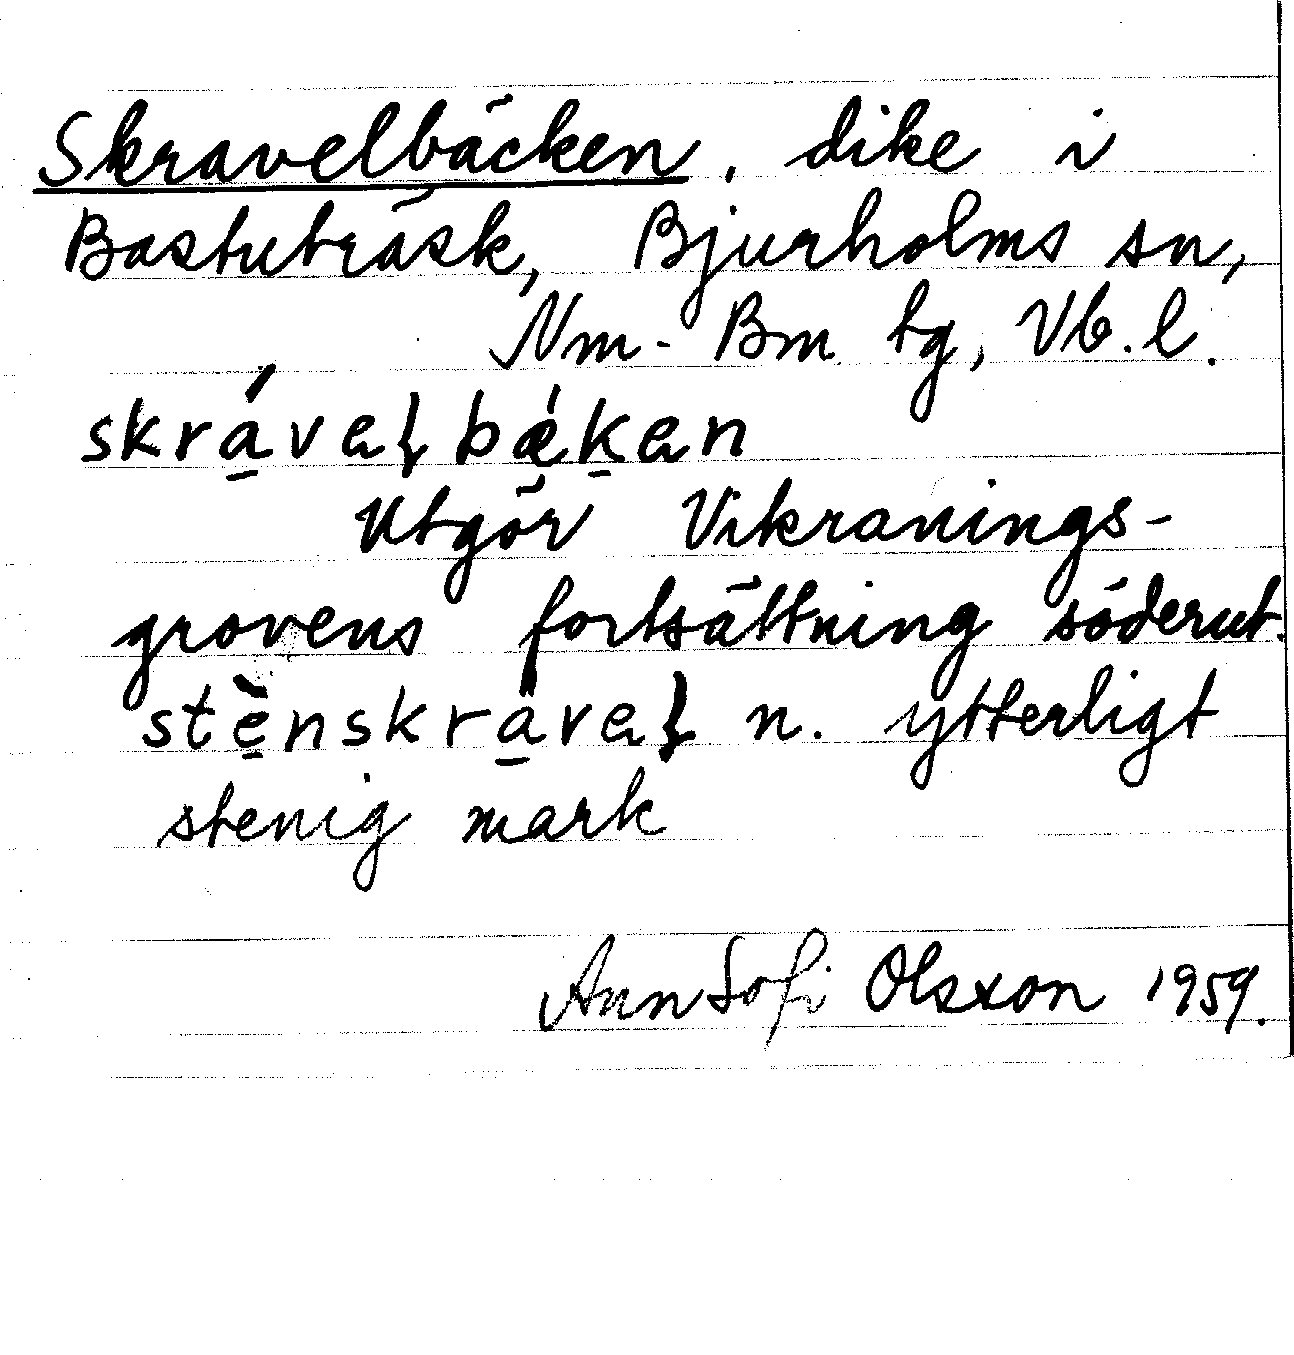 Skravelbäcken, dike i
Bastuträsk, Bjurholms sn,
Nm-Bm tg, Vb.l.
skrávaɭbǽkan
Utgör Vikranings-
grovens fortsättning söderut.
stènskravaɭ n. ytterligt
stenig mark
Ann Sofi Olsxon 1959.